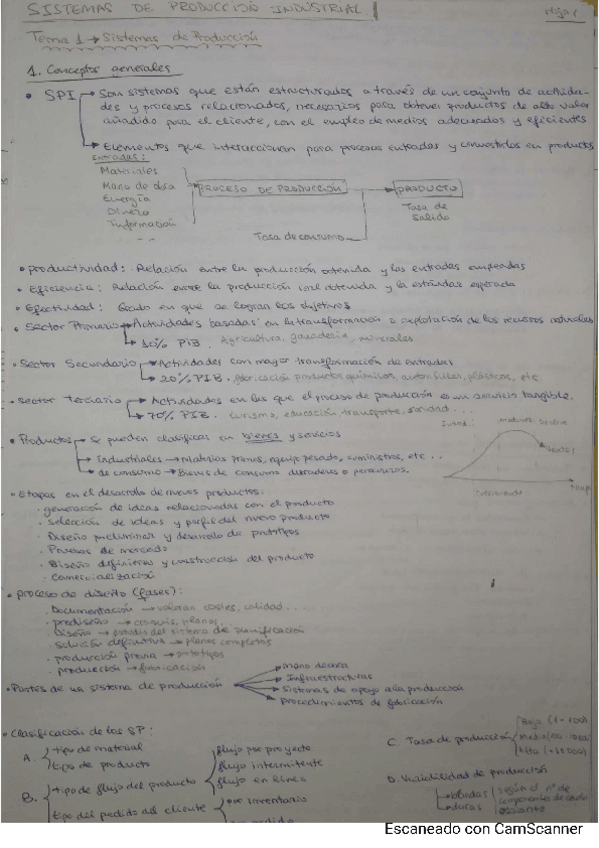 SISTEMAS DE PRODUCCIÓN INDUSTRIAL
Hoja 1
Tema 1 → Sistemas de Producción
1. Conceptos generales
• SPI → Son sistemas que están estructurados a través de un conjunto de activida-
des y procesos relacionados, necesarios para obtener productos de alto valor
añadido para el cliente, con el empleo de medios adecuados y eficientes
→ Elementos que interaccionan para procesar entradas y convertirlas en productos
Entradas:
Materiales
Mano de obra
Energía
Dinero
Información
PROCESO DE PRODUCCIÓN
PRODUCTO
Tasa de
salida
Tasa de consumo
• Productividad: Relación entre la producción obtenida y las entradas empleadas
• Eficiencia: Relación entre la producción real obtenida y la estándar esperada
• Efectividad: Grado en que se logran los objetivos
• Sector Primario → Actividades basadas en la transformación o explotación de los recursos naturales
→ 10% PIB. Agricultura, ganadería, minerales
• Sector Secundario → Actividades con mayor transformación de entradas
→ 20% PIB. fabricación productos químicos, automóviles, plásticos, etc
• Sector Terciario → Actividades en las que el proceso de producción es un servicio tangible.
→ 70% PIB. turismo, educación, transporte, sanidad...
• Productos → Se pueden clasificar en bienes y servicios
→ Industriales → Materias primas, equipo pesado, suministros, etc ..
→ de consumo → Bienes de consumo duraderos o perecederos.
madurez declive
• Etapas en el desarrollo de nuevos productos:
· generación de ideas relacionadas con el producto
· Selección de ideas y perfil del nuevo producto
· Diseño preliminar y desarrollo de prototipos
· Pruebas de mercado
· Diseño definitivo y construcción del producto
· Comercialización
• proceso de diseño (fases):
· Documentación → valoran costes, calidad...
· prediseño → croquis, planos
· Diseño → estudio del sistema de planificación
· Solución definitiva → planos completos
· producción previa → prototipos
· producción → fabricación
• Partes de un sistema de producción → Mano de obra
→ Infraestructuras
→ Sistemas de apoyo a la producción
→ Procedimientos de fabricación
• Clasificación de los SP:
A. tipo de material
tipo de producto
B. tipo de flujo del producto
flujo por proyecto
flujo intermitente
flujo en línea
tipo del pedido del cliente
por inventario
C. Tasa de producción
Baja (1-100)
D. Variabilidad de producción
→ blandas
→ duras
según el nº de
componentes
Escaneado con CamScanner